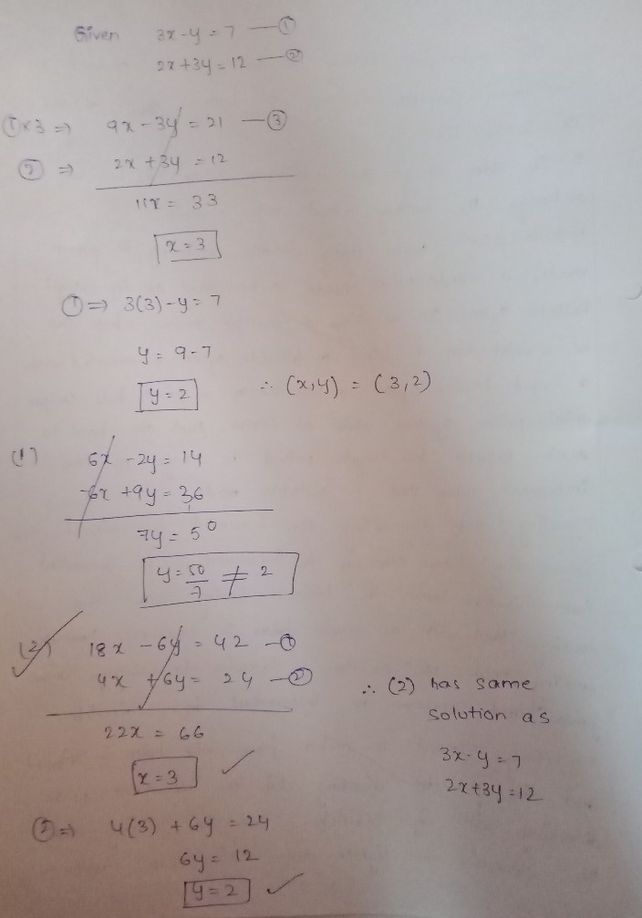 Given 3x-y = 7 — ①
2x+3y = 12 — ②
①×3 ⇒ 9x - 3y = 21 — ③
② ⇒ 2x + 3y = 12
11x = 33
x = 3
① ⇒ 3(3) - y = 7
y = 9-7
y = 2 ∴ (x,y) = (3,2)
(1) 6x - 2y = 14
-6x + 9y = 36
7y = 50
y = 50/7 ≠ 2
(2) 18x - 6y = 42 — ①
4x + 6y = 24 — ②
22x = 66
x = 3 ✓
② ⇒ 4(3) + 6y = 24
6y = 12
y = 2 ✓
∴ (2) has same
solution as
3x-y = 7
2x+3y = 12